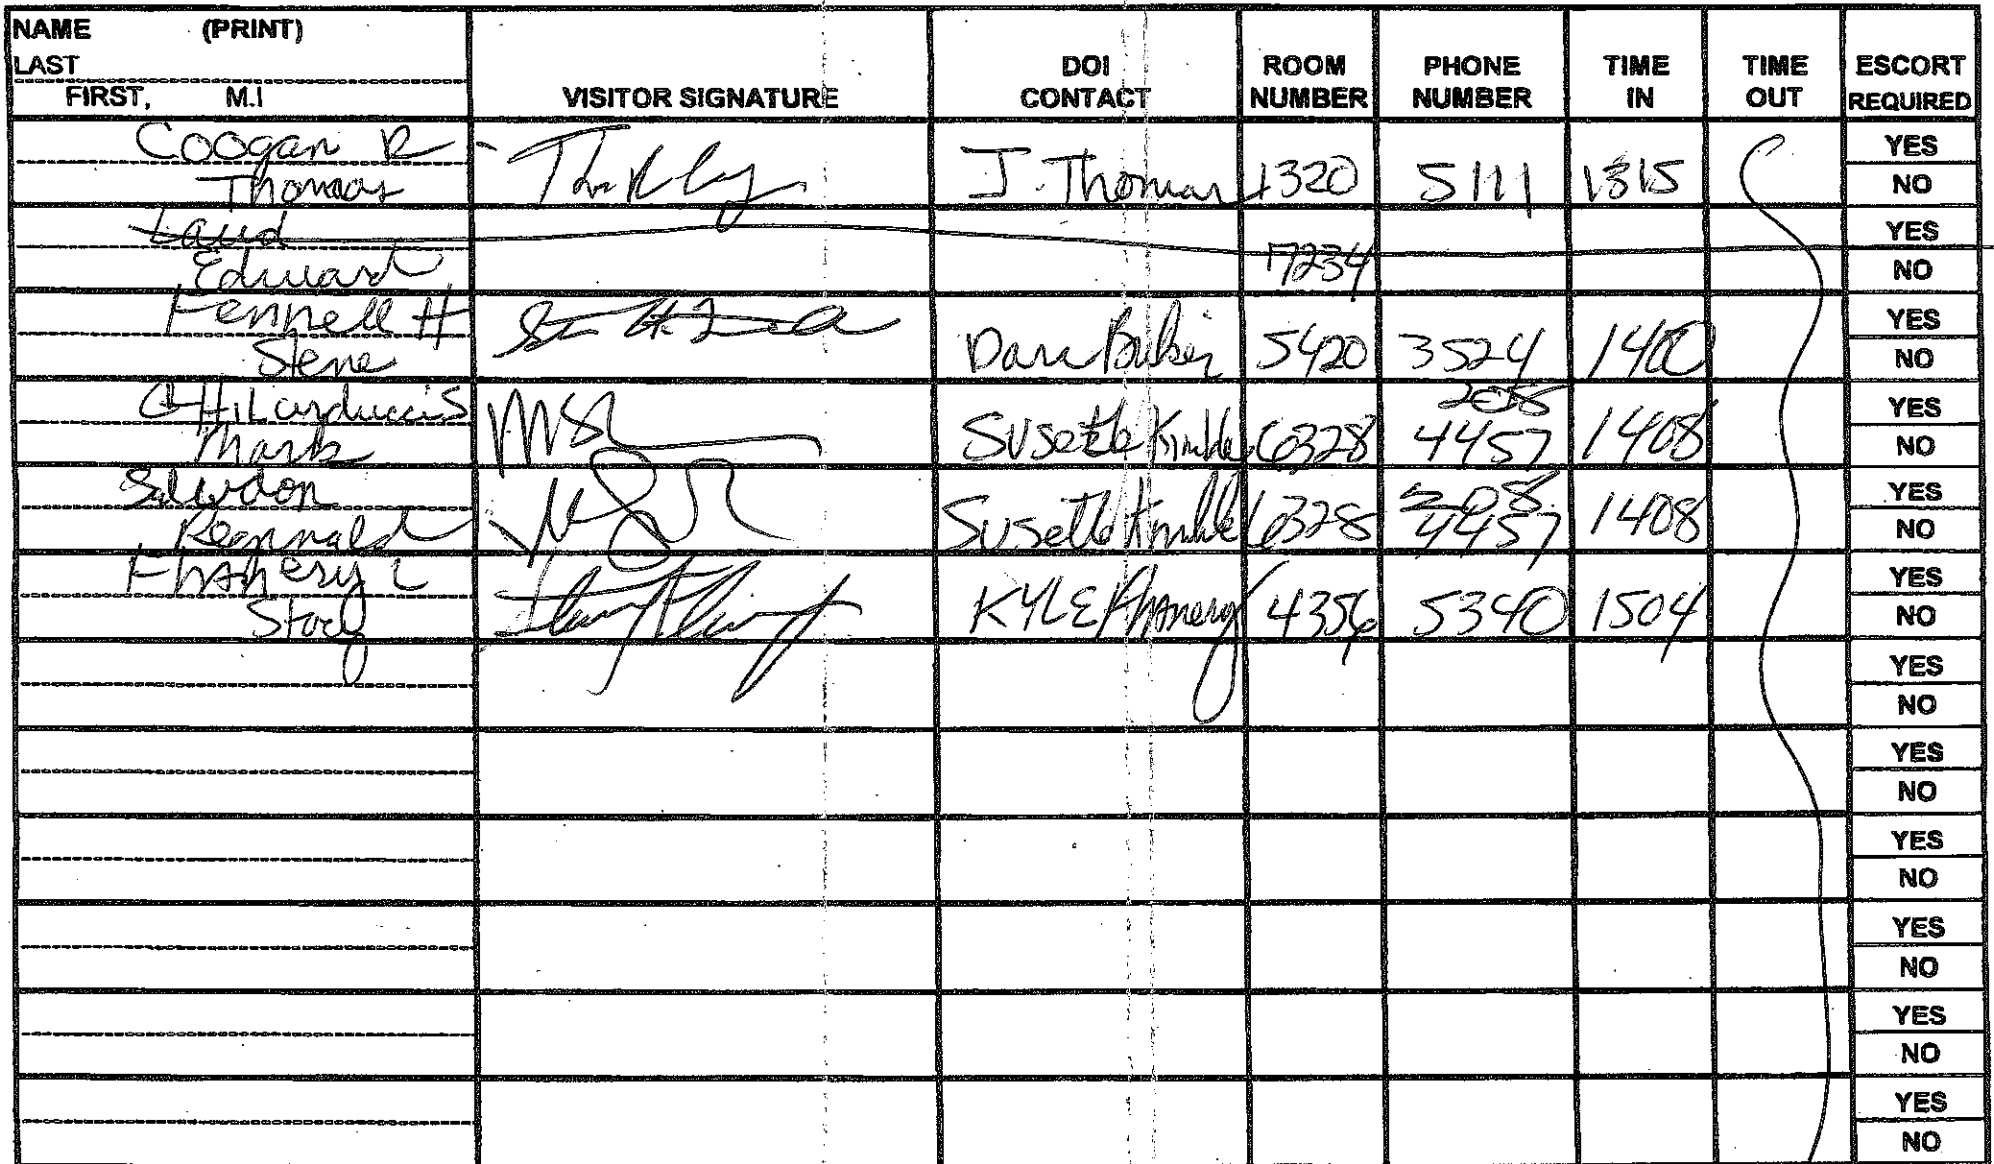 NAME (PRINT)
LAST
FIRST, M.I
VISITOR SIGNATURE
DOI
CONTACT
ROOM
NUMBER
PHONE
NUMBER
TIME
IN
TIME
OUT
ESCORT
REQUIRED
Coogan R
Thomas
J. Thomas 1320 5111 1315
YES
NO
Edward
7234
YES
NO
Fennell H
Steve
Baker 5420 3524 1400
YES
NO
Mark
Susette Kimble 6328 208 4457 1408
YES
NO
Reginald
Susette Kimble 6328 208 4457 1408
YES
NO
Stacy
KYLE 4356 5340 1504
YES
NO
YES
NO
YES
NO
YES
NO
YES
NO
YES
NO
YES
NO